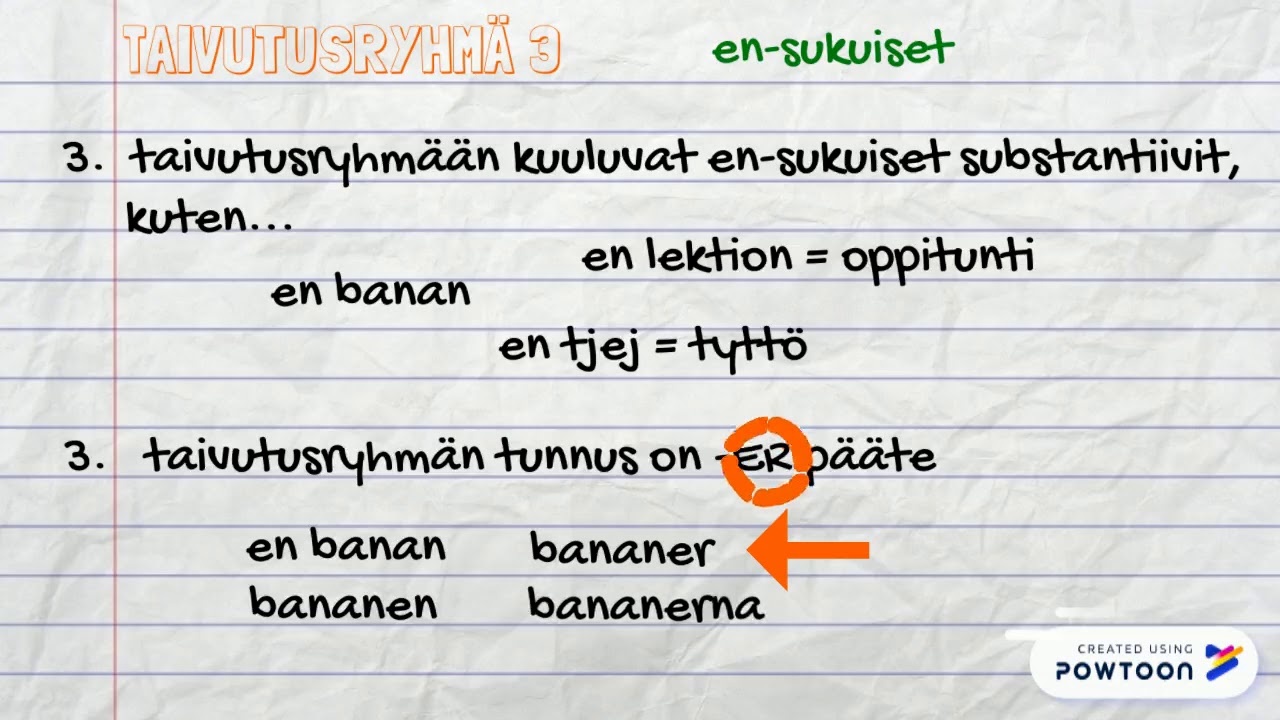 TAIVUTUSRYHMÄ 3
en-sukuiset
3. taivutusryhmään kuuluvat en-sukuiset substantiivit,
kuten...
en lektion = oppitunti
en banan
en tjej = tyttö
3. taivutusryhmän tunnus on -ER pääte
en banan bananer
bananen bananerna
CREATED USING
POWTOON